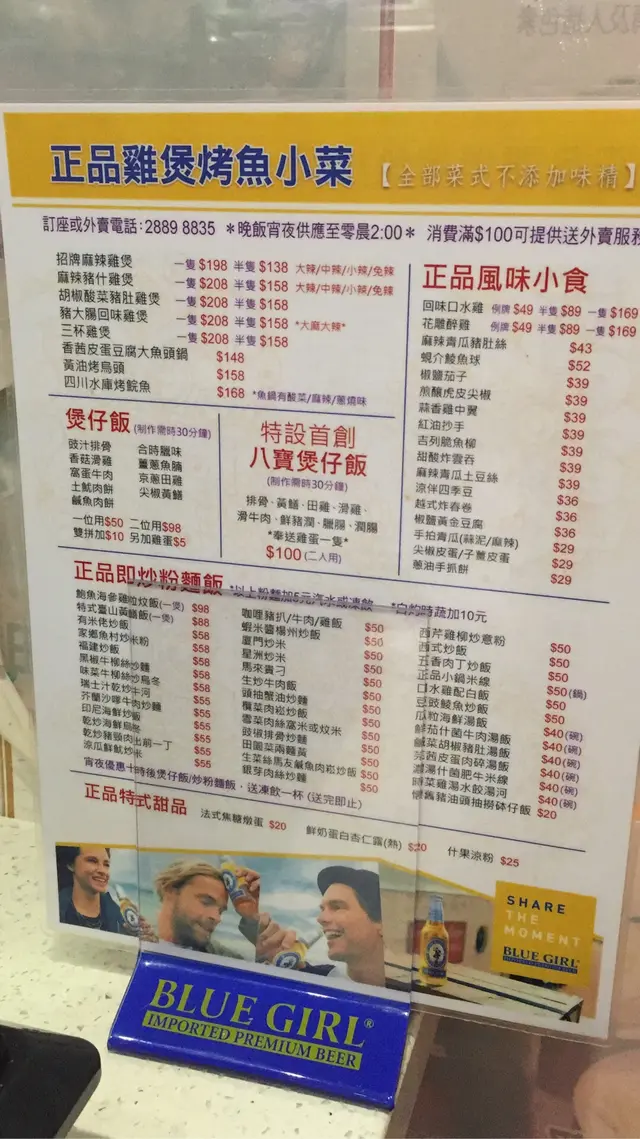 正品雞煲烤魚小菜 【全部菜式不添加味精】
訂座或外賣電話：2889 8835 ＊晚飯宵夜供應至零晨2:00＊ 消費滿$100可提供送外賣服務
招牌麻辣雞煲 一隻 $198 半隻 $138 大辣/中辣/小辣/免辣
麻辣豬什雞煲 一隻 $208 半隻 $158 大辣/中辣/小辣/免辣
胡椒酸菜豬肚雞煲 一隻 $208 半隻 $158
豬大腸回味雞煲 一隻 $208 半隻 $158 *大麻大辣*
三杯雞煲 一隻 $208 半隻 $158
香茜皮蛋豆腐大魚頭鍋 $148
黃油烤烏頭 $158
四川水庫烤鯇魚 $168 *魚鍋有酸菜/麻辣/蔥燒味
正品風味小食
回味口水雞 例牌 $49 半隻 $89 一隻 $169
花雕醉雞 例牌 $49 半隻 $89 一隻 $169
麻辣青瓜豬肚絲 $43
蜆介鯪魚球 $52
椒鹽茄子 $39
煎釀虎皮尖椒 $39
蒜香雞中翼 $39
紅油抄手 $39
吉列脆魚柳 $39
甜酸炸雲吞 $39
麻辣青瓜土豆絲 $39
涼伴四季豆 $36
越式炸春卷 $36
椒鹽黃金豆腐 $36
手拍青瓜(蒜泥/麻辣) $29
尖椒皮蛋/子薑皮蛋 $29
蔥油手抓餅 $29
煲仔飯 (制作需時30分鐘)
豉汁排骨 合時臘味
香菇滑雞 薑蔥魚腩
窩蛋牛肉 京蔥田雞
土魷肉餅 尖椒黃鱔
鹹魚肉餅
一位用$50 二位用$98
雙拼加$10 另加雞蛋$5
特設首創
八寶煲仔飯
(制作需時30分鐘)
排骨、黃鱔、田雞、滑雞、
滑牛肉、鮮豬潤、臘腸、潤腸
*奉送雞蛋一隻*
$100 (二人用)
正品即炒粉麵飯 *以上粉麵加5元汽水或凍飲 *白灼時蔬加10元
鮑魚海參雞粒炆飯(一煲) $98
特式臺山黃鱔飯(一煲) $88
有米佬炒飯 $58
家鄉魚村炒米粉 $58
福建炒飯 $58
黑椒牛柳絲炒麵 $58
味菜牛柳絲炒烏冬 $58
瑞士汁乾炒牛河 $55
芥蘭沙嗲牛肉炒麵 $55
印尼海鮮炒飯 $55
乾炒海鮮烏冬 $55
乾炒豬頸肉出前一丁 $55
涼瓜鮮魷炒米 $55
咖哩豬扒/牛肉/雞飯 $50
蝦米醬楊州炒飯 $50
廈門炒米 $50
星洲炒米 $50
馬來貴刁 $50
生炒牛肉飯 $50
頭抽蟹油炒麵 $50
欖菜肉崧炒飯 $50
雪菜肉絲窩米或炆米 $50
豉椒排骨炒麵 $50
田園菜兩麵黃 $50
生菜絲馬友鹹魚肉崧炒飯 $50
銀芽肉絲炒麵 $50
西芹雞柳炒意粉 $50
西式炒飯 $50
五香肉丁炒飯 $50
正品小鍋米線 $50
口水雞配白飯 $50(鍋)
豆豉鯪魚炒飯 $50
瓜粒海鮮湯飯 $50
鮮茄什菌牛肉湯飯 $40(碗)
鹹菜胡椒豬肚湯飯 $40(碗)
芫茜皮蛋肉碎湯飯 $40(碗)
濃湯什菌肥牛米線 $40(碗)
時菜雞湯水餃湯河 $40(碗)
懷舊豬油頭抽撈砵仔飯 $20
宵夜優惠十時後煲仔飯/炒粉麵飯，送凍飲一杯 (送完即止)
正品特式甜品 法式焦糖燉蛋 $20 鮮奶蛋白杏仁露(熱) $20 什果涼粉 $25
SHARE
THE
MOMENT
BLUE GIRL
BLUE GIRL®
IMPORTED PREMIUM BEER